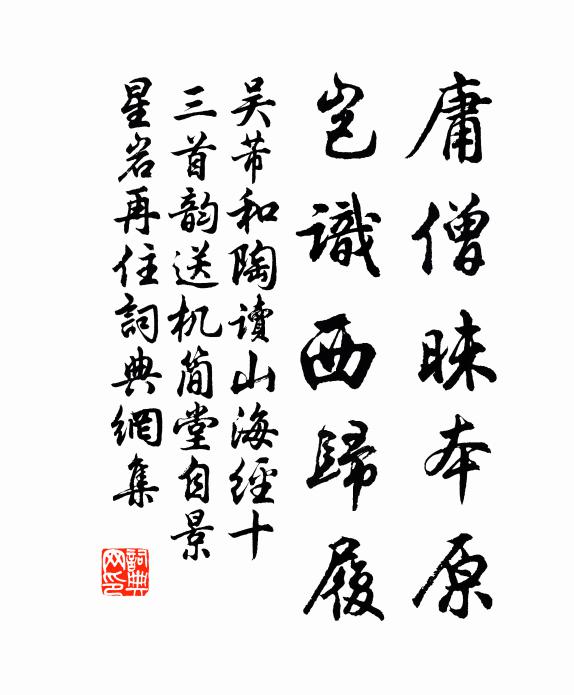 庸僧昧本原
岂識西歸履
吴芾和陶讀山海經十
三首韵送机简堂自景
星岩再住詞典網集
詞典網印